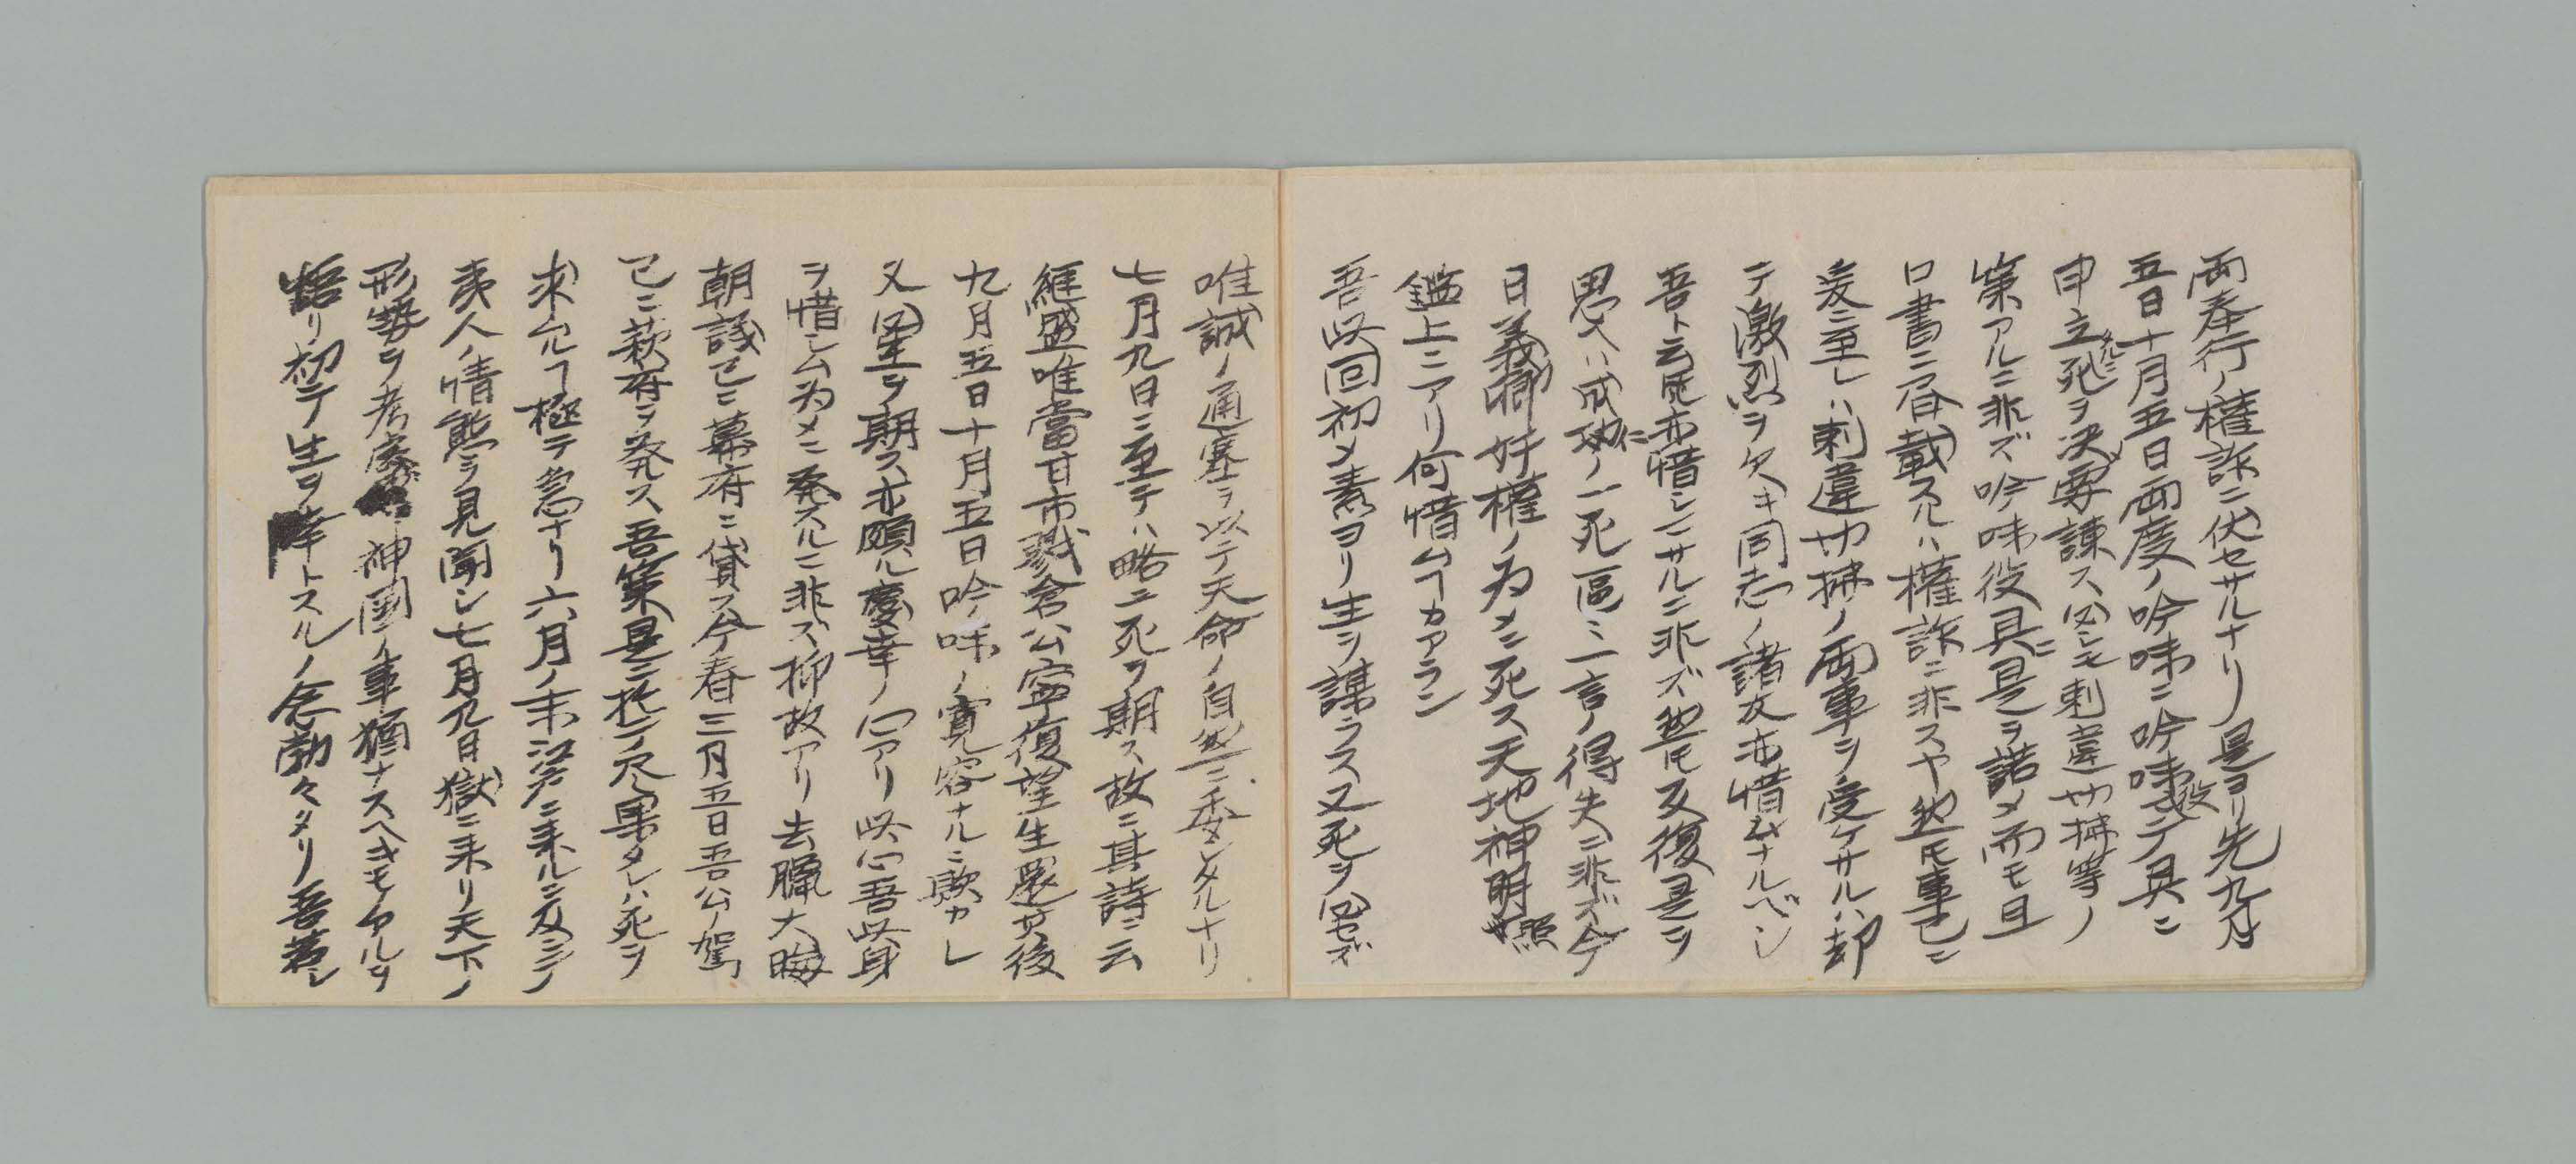 両奉行ノ権詐ニ伏セサルナリ是ヨリ先九月
五日十月五日両度ノ吟味ニ吟味役マテ具ニ
申立タルニ死ヲ決メ要諫ス必シモ刺違切拂等ノ
策アルニ非ズ吟味役具ニ是ヲ諾メ而モ且
口書ニ書載スルハ権詐ニ非スヤ然モ事已ニ
爰ニ至レハ刺違切拂ノ両事ヲ受ケサルハ却
テ激烈ヲ欠キ同志ノ諸友亦惜ムナルベシ
吾ト云𪜈亦惜シマサルニ非ズ然𪜈反復是ヲ
思ヘハ成仁ノ一死區々一言ノ得失ニ非ズ今
日義卿奸権ノ為メニ死ス天地神明照
鑑上ニアリ何惜ムヿカアラン
吾此回初メ素ヨリ生ヲ謀ラス又死ヲ必セズ
唯誠ノ通塞ヲ以テ天命ノ自然ニ委シタルナリ
七月九日ニ至テハ略ニ死ヲ期ス故ニ其詩ニ云
継盛唯當甘市戮倉公寧復望生還其後
九月五日十月五日吟味ノ寛容ナルニ欺カレ
又必生ヲ期ス亦頗ル慶幸ノ心アリ此心吾此身
ヲ惜シム為メニ発スルニ非ス抑故アリ去臘大晦
朝議已ニ幕府ニ貸ス今春三月五日吾公ノ駕
已ニ萩府ヲ発ス吾策是ニ於テ尽果タレハ死ヲ
求ムルヿ極テ急ナリ六月ノ末江戸ニ来ルニ及ンテ
夷人ノ情態ヲ見聞シ七月九日獄ニ来リ天下ノ
形勢ヲ考察シ神国ノ事猶ナスヘキモノアルヲ
悟リ初テ生ヲ幸トスルノ念勃々タリ吾若シ